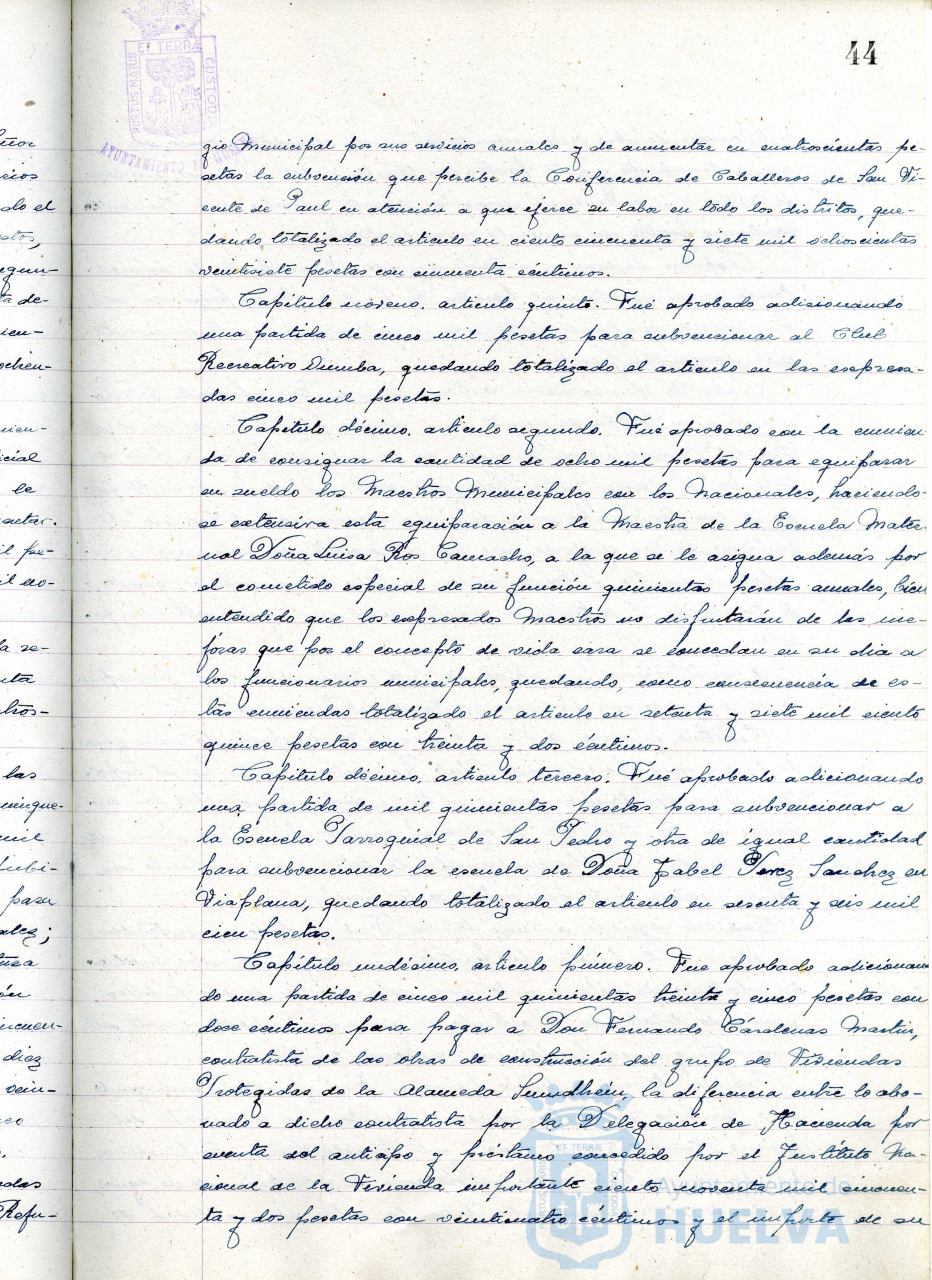 44
ET TERRÆ
PORTUS MARIS
CUSTOD
AYUNTAMIENTO
gio Municipal por sus servicios anuales y de aumentar en cuatrocientas pe-
setas la subvención que percibe la Conferencia de Caballeros de San Vi-
cente de Paul en atención a que ejerce su labor en todo los distritos, que-
dando totalizado el articulo en ciento cincuenta y siete mil ochocientas
veintisiete pesetas con cincuenta céntimos.
Capítulo noveno. articulo quinto. Fué aprobado adicionando
una partida de cinco mil pesetas para subvencionar al Club
Recreativo Onuba, quedando totalizado el articulo en las expresa-
das cinco mil pesetas.
Capítulo décimo. articulo segundo. Fué aprobado con la enmien
da de consignar la cantidad de ocho mil pesetas para equiparar
en sueldo los Maestros Municipales con los Nacionales, haciendo-
se extensiva esta equiparación a la Maestra de la Escuela Mater
nal Doña Luisa Ros Camacho, a la que se le asigna además por
el cometido especial de su función quinientas pesetas anuales, bien
entendido que los expresados Maestros no disfrutarán de las me-
joras que por el concepto de vida cara se concedan en su dia a
los funcionarios municipales, quedando, como consecuencia de es-
tas enmiendas totalizado el articulo en setenta y siete mil ciento
quince pesetas con treinta y dos céntimos.
Capítulo décimo, articulo tercero. Fué aprobado adicionando
una partida de mil quinientas pesetas para subvencionar a
la Escuela Parroquial de San Pedro y otra de igual cantidad
para subvencionar la escuela de Doña Isabel Perez Sanchez en
Viaplana, quedando totalizado el articulo en sesenta y seis mil
cien pesetas.
Capítulo undécimo, articulo primero. Fue aprobado adicionan
do una partida de cinco mil quinientas treinta y cinco pesetas con
doce céntimos para pagar a Don Fernando Cárdenas Martin,
contratista de las obras de construcción del grupo de Viviendas
Protegidas de la Alameda Sundheim, la diferencia entre lo abo-
nado a dicho contratista por la Delegación de Hacienda por
cuenta del anticipo y préstamo concedido por el Instituto Na-
cional de la Vivienda importante ciento noventa mil cincuen-
ta y dos pesetas con veinticuatro céntimos y el importe de su
Ayuntamiento de
HUELVA